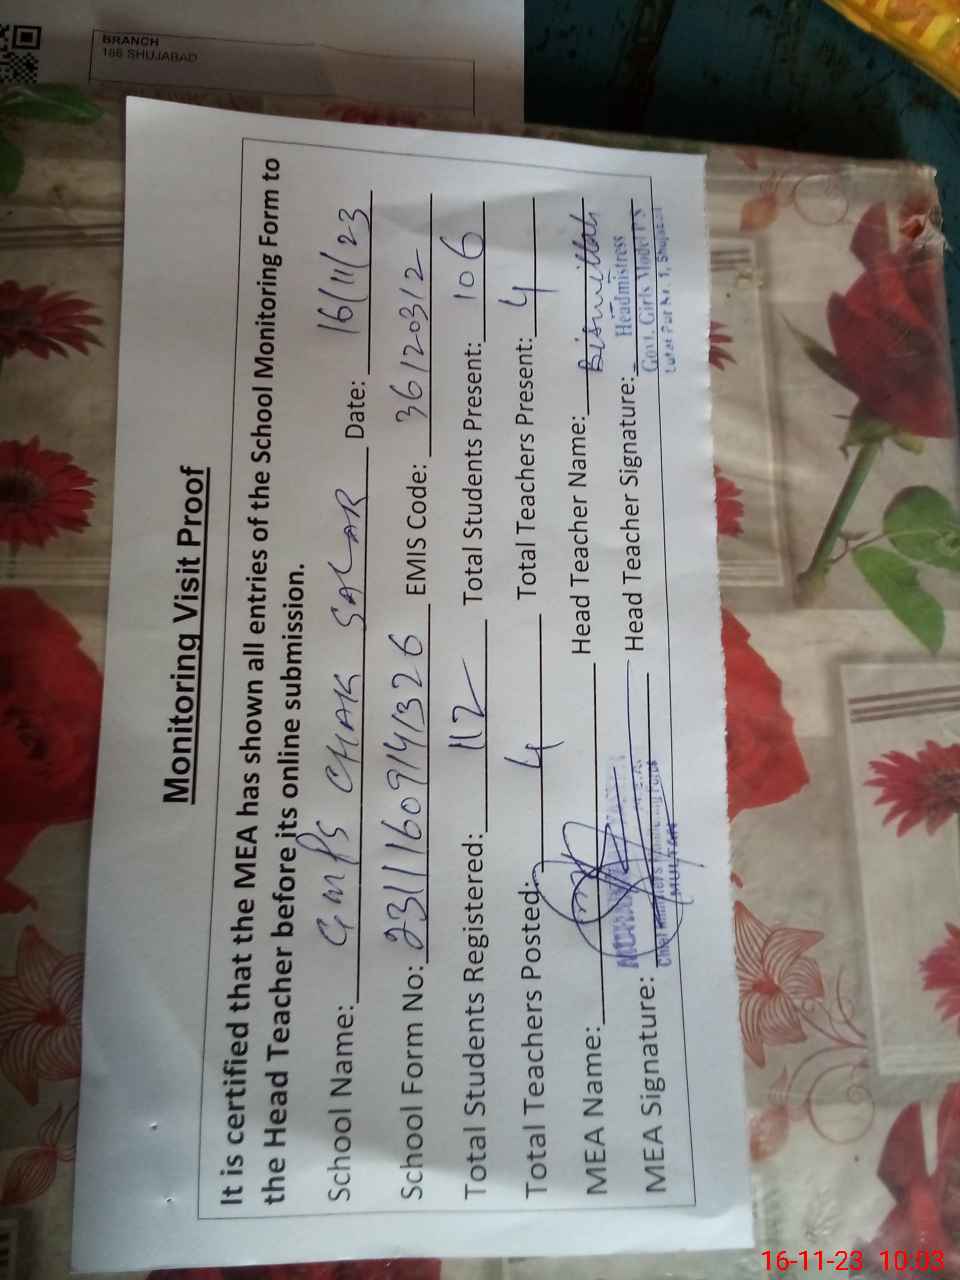 BRANCH
186 SHUJABAD
Monitoring Visit Proof
It is certified that the MEA has shown all entries of the School Monitoring Form to
the Head Teacher before its online submission.
School Name: GMPS CHAK SALAR Date: 16/11/23
School Form No: 23111609141326 EMIS Code: 36120312
Total Students Registered: 112 Total Students Present: 106
Total Teachers Posted: 4 Total Teachers Present: 4
MEA Name: Head Teacher Name: Bismillah
MEA Signature: Head Teacher Signature:
Headmistress
Govt. Girls Model P/S
MULTAN
16-11-23 10:03